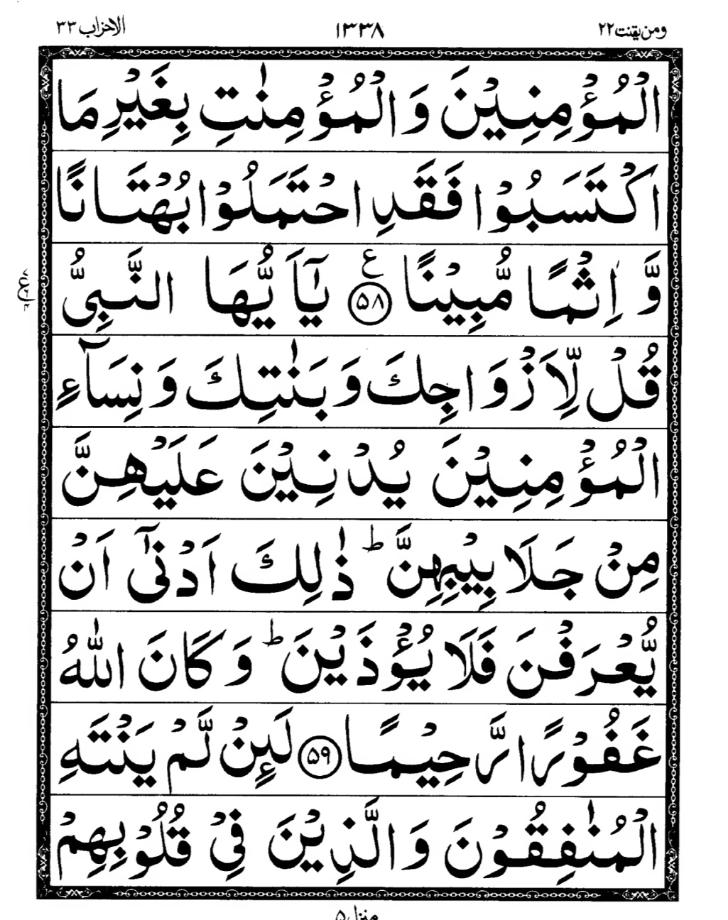 ومن یقنت ۲۲ ۱۳۳۸ الاحزاب ۳۳
الْمُؤْمِنِيْنَ وَالْمُؤْمِنٰتِ بِغَيْرِ مَا
اكْتَسَبُوْا فَقَدِ احْتَمَلُوْا بُهْتَانًا
وَّ اِثْمًا مُّبِيْنًا ۵۸ ع يٰۤاَيُّهَا النَّبِيُّ
قُلْ لِّاَزْوَاجِكَ وَبَنٰتِكَ وَنِسَآءِ
الْمُؤْمِنِيْنَ يُدْنِيْنَ عَلَيْهِنَّ
مِنْ جَلَابِيْبِهِنَّ ؕ ذٰلِكَ اَدْنٰۤى اَنْ
يُّعْرَفْنَ فَلَا يُؤْذَيْنَ ؕ وَكَانَ اللّٰهُ
غَفُوْرًا رَّحِيْمًا ۵۹ لَئِنْ لَّمْ يَنْتَهِ
الْمُنٰفِقُوْنَ وَالَّذِيْنَ فِيْ قُلُوْبِهِمْ
منزل ۵